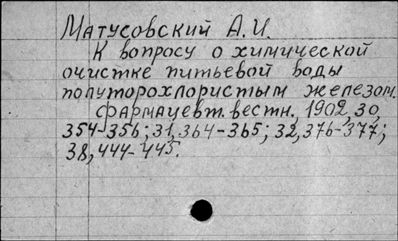 Матусовский А.И.
К вопросу о химической
очистке питьевой воды
полуторохлористым железом.
Фармацевт. вестн., 1902, 30,
354-356; 31, 364-365; 32, 376-377;
38, 444-445.